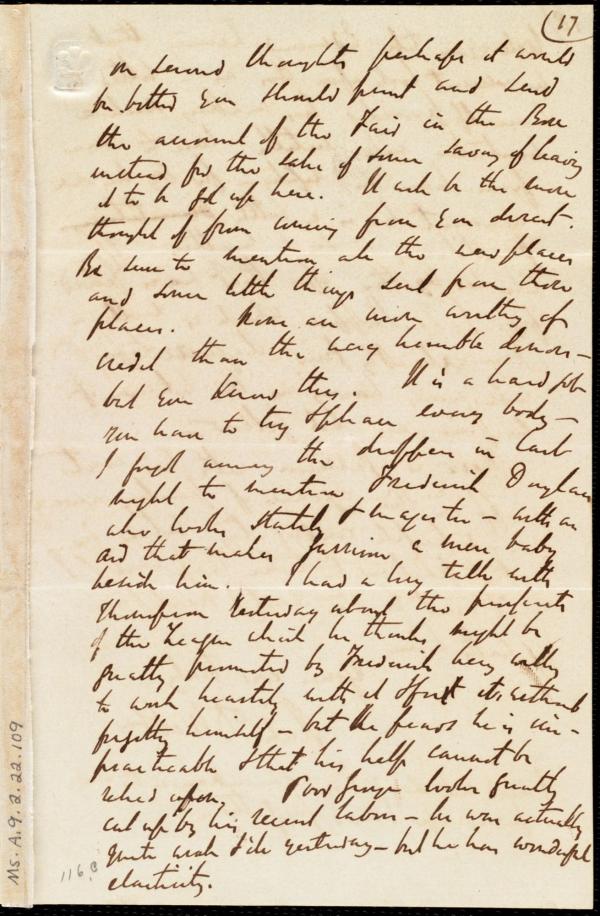 (17
on second thoughts perhaps it would
be better you should print and send
the account of the Fair in the Box
instead for the sake of some saving of having
it to be got up here. It will be the more
thought of from coming from you direct.
Be sure to mention all the new places
and some little things sent from those
places. None are more worthy of
credit than the very humble donors —
but you know this. It is a hard job
you have to try & please every body —
I forgot among the droppers in last
night to mention Frederick Douglass
who looks stately & majestic — with an
air that makes a mere baby
beside him. I had a long talk with
Thompson yesterday about the prospects
of the League which he thinks might be
greatly promoted by Frederick being willing
to work heartily with it & for it without
forgetting himself — but he fears he is im-
practicable & that his help cannot be
relied upon. Poor George looks greatly
cut up by his recent labors — he was actually
quite weak & ill yesterday — but he has wonderful
elasticity.
Ms. A. 9. 2. 22. 109
116